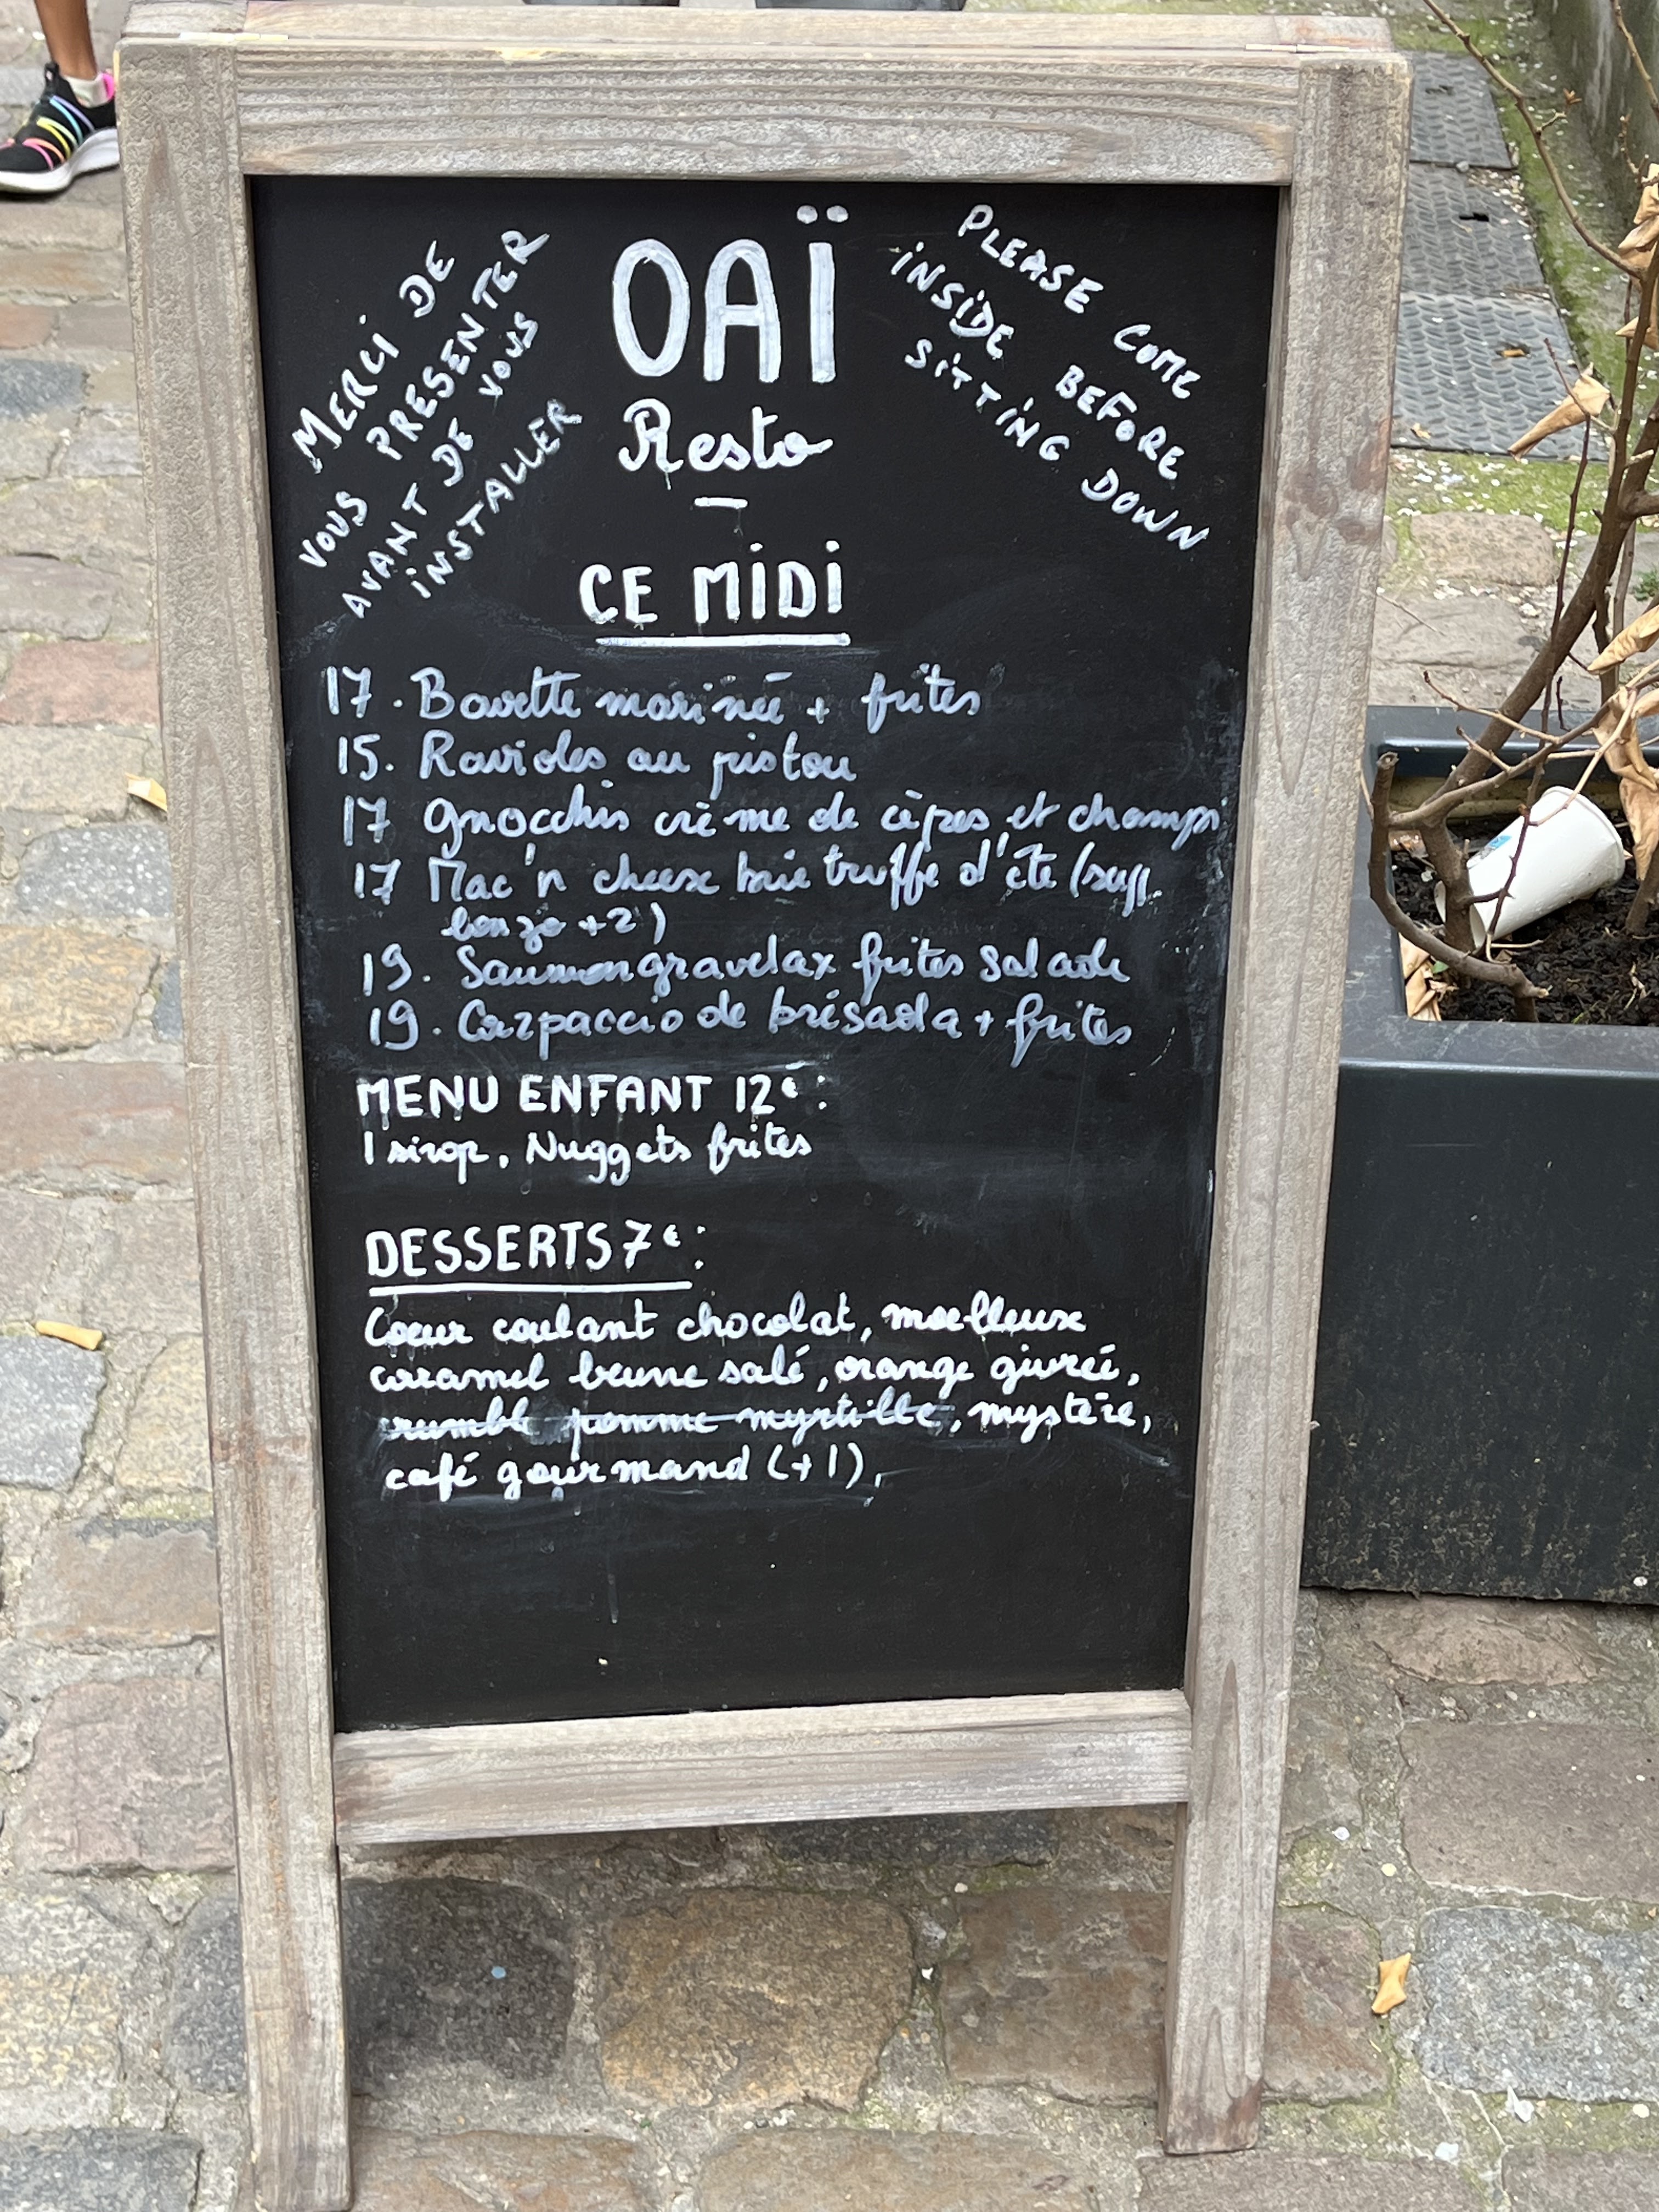 MERCI DE
VOUS PRESENTER
AVANT DE VOUS
iNSTALLER
OAÏ
Resto
PLEASE COME
iNSiDE BEFORE
SiTTiNG DOWN
CE MiDi
17. Bavette marinée + frites
15. Ravioles au pistou
17 gnocchis crème de cèpes et champs
17 Mac'n cheese brie truffe d'été (supp.
bonzo +2)
19. Saumon gravelax frites salade
19. Carpaccio de brésaola + frites
MENU ENFANT 12€:
1 sirop, Nuggets frites
DESSERTS 7€:
Coeur coulant chocolat, moelleux
caramel beurre salé, orange givrée,
crumble pomme myrtille, mystère,
café gourmand (+1),